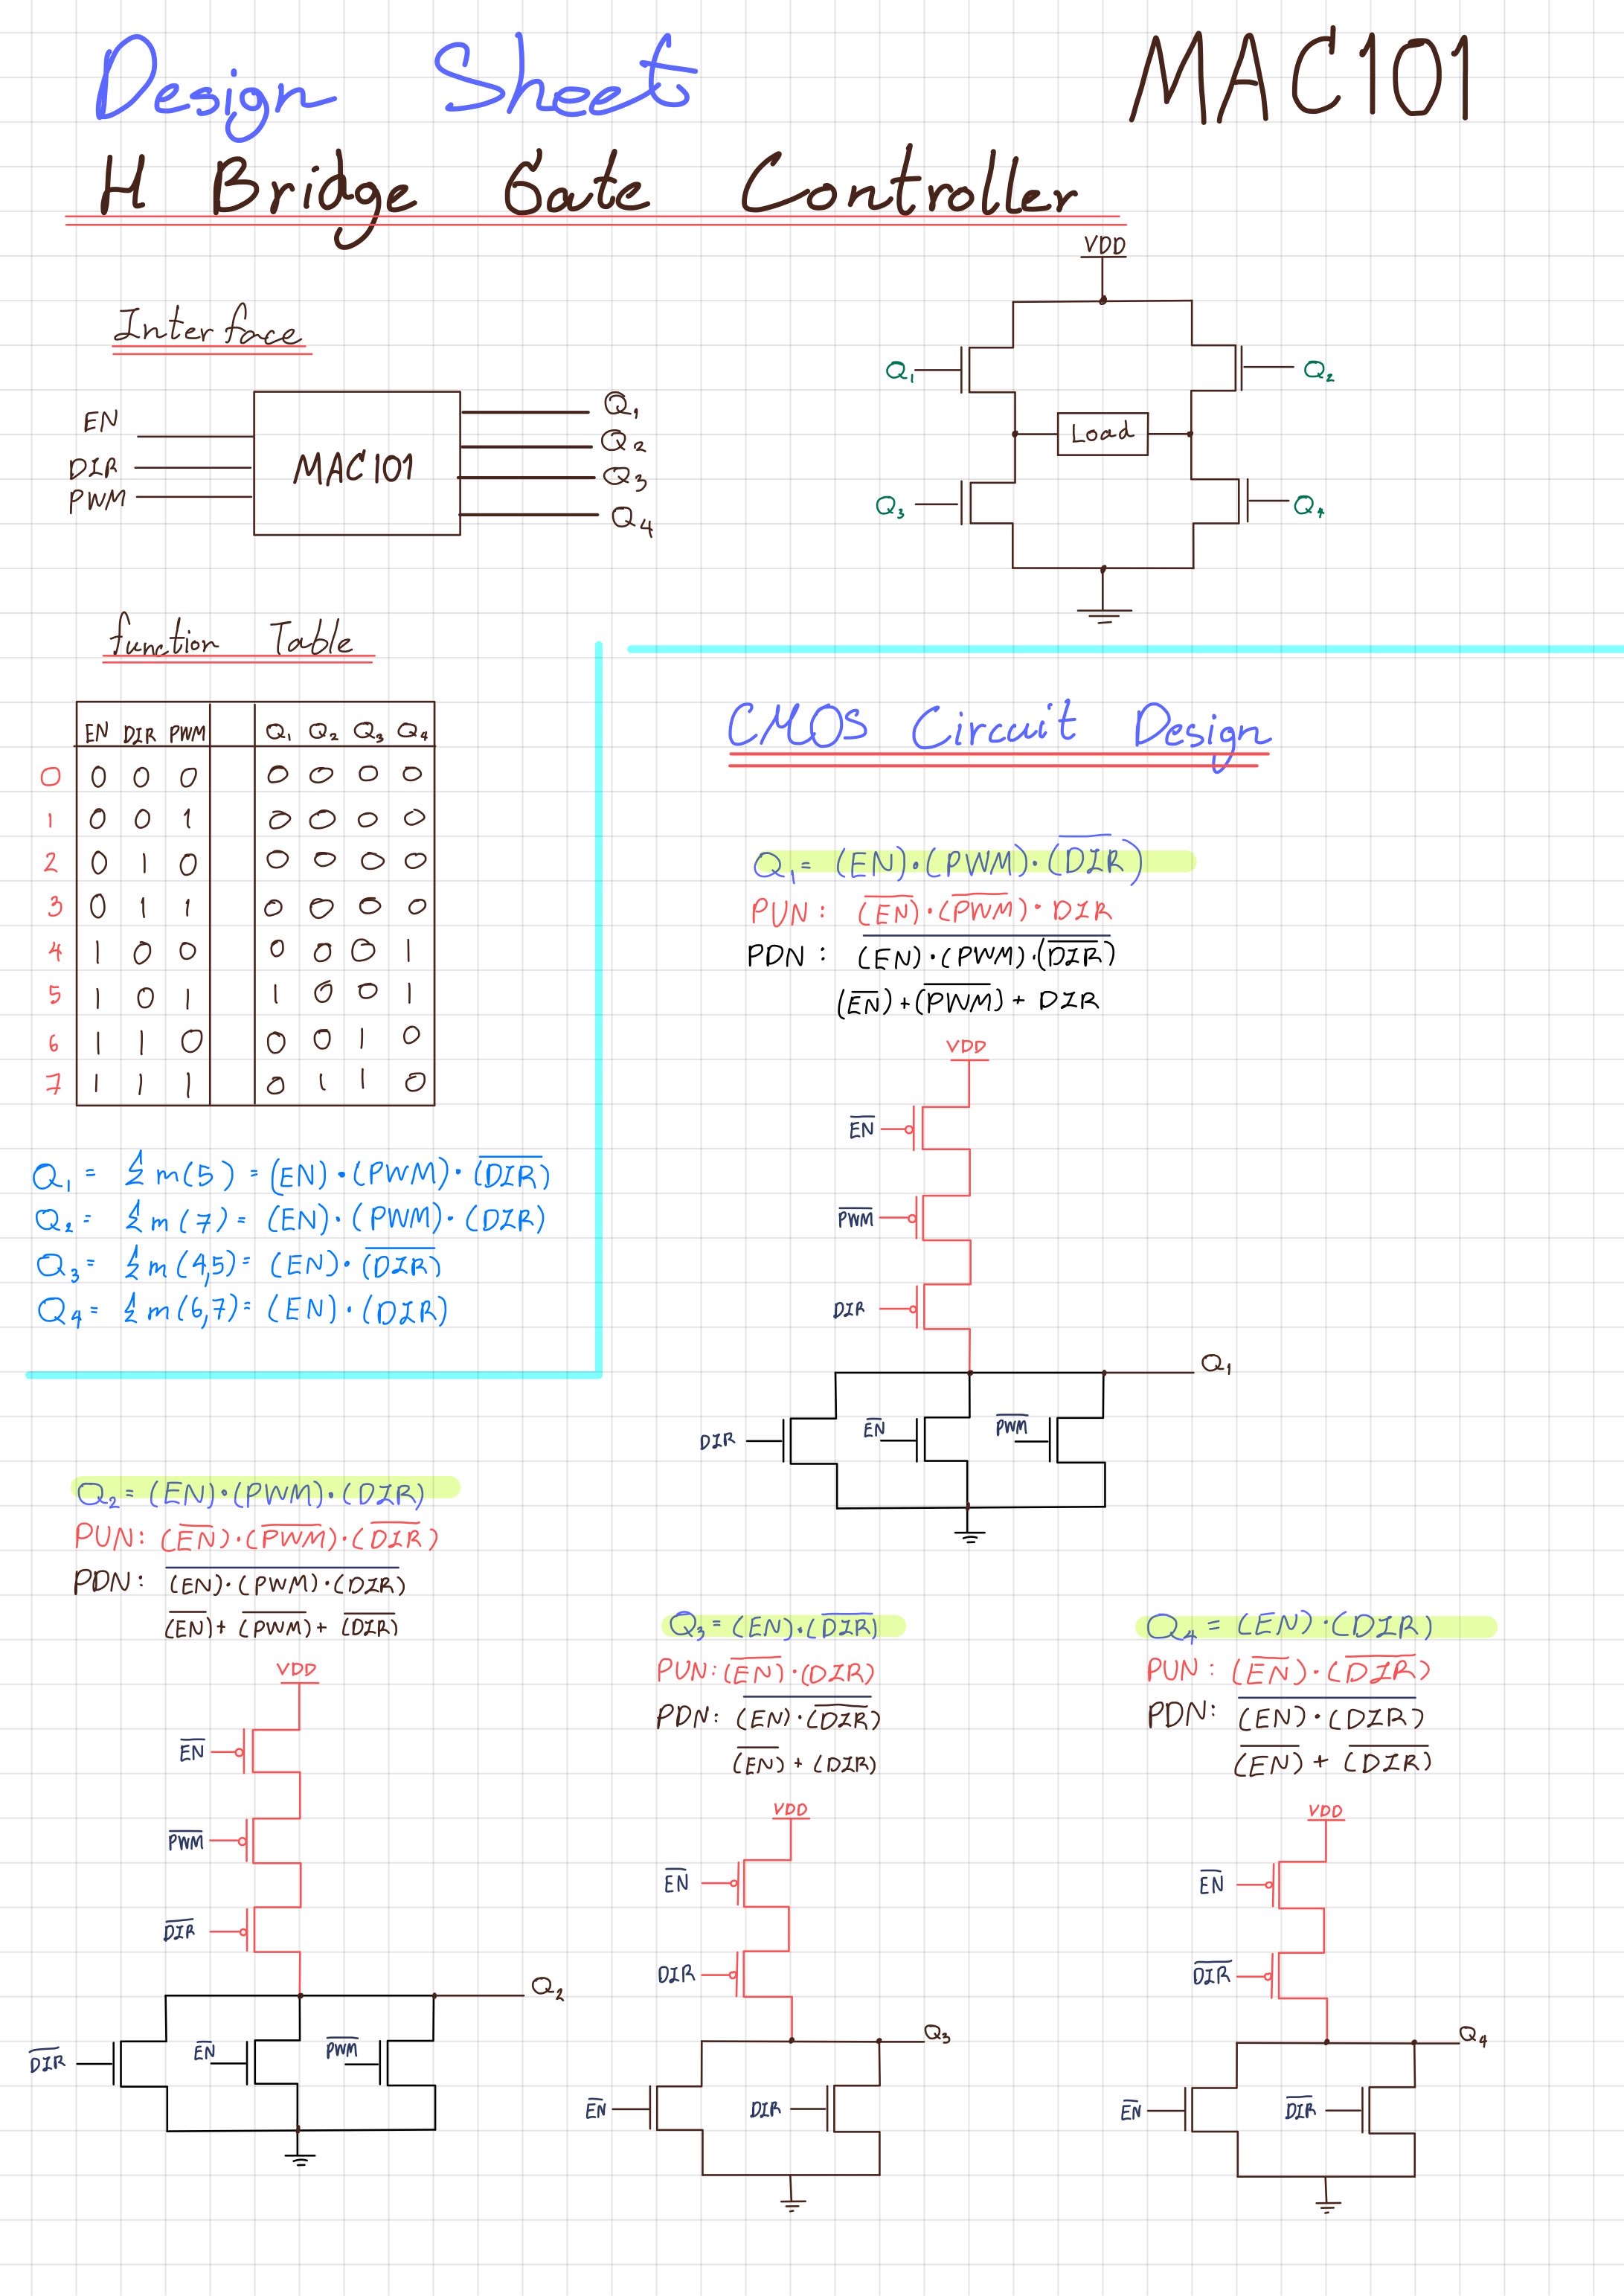 Design Sheet MAC101
H Bridge Gate Controller
VDD
Interface
Q₁ Q₂
Load
Q₃ Q₄
EN
DIR
PWM
MAC101
Q₁
Q₂
Q₃
Q₄
function Table
EN DIR PWM Q₁ Q₂ Q₃ Q₄
0 0 0 0 0 0 0 0
1 0 0 1 0 0 0 0
2 0 1 0 0 0 0 0
3 0 1 1 0 0 0 0
4 1 0 0 0 0 0 1
5 1 0 1 1 0 0 1
6 1 1 0 0 0 1 0
7 1 1 1 0 1 1 0
Q₁ = Σ m(5) = (EN)·(PWM)·(D̅I̅R̅)
Q₂ = Σ m(7) = (EN)·(PWM)·(DIR)
Q₃ = Σ m(4,5) = (EN)·(D̅I̅R̅)
Q₄ = Σ m(6,7) = (EN)·(DIR)
CMOS Circuit Design
Q₁ = (EN)·(PWM)·(D̅I̅R̅)
PUN: (E̅N̅)·(P̅W̅M̅)·DIR
PDN: \overline{(EN)·(PWM)·(D̅I̅R̅)}
(E̅N̅)+(P̅W̅M̅)+ DIR
VDD
E̅N̅
P̅W̅M̅
DIR
Q₁
DIR E̅N̅ P̅W̅M̅
Q₂ = (EN)·(PWM)·(DIR)
PUN: (E̅N̅)·(P̅W̅M̅)·(D̅I̅R̅)
PDN: \overline{(EN)·(PWM)·(DIR)}
(E̅N̅)+ (P̅W̅M̅)+ (D̅I̅R̅)
VDD
E̅N̅
P̅W̅M̅
D̅I̅R̅
Q₂
D̅I̅R̅ E̅N̅ P̅W̅M̅
Q₃ = (EN)·(D̅I̅R̅)
PUN: (E̅N̅)·(DIR)
PDN: \overline{(EN)·(D̅I̅R̅)}
(E̅N̅) + (DIR)
VDD
E̅N̅
DIR
Q₃
E̅N̅ DIR
Q₄ = (EN)·(DIR)
PUN: (E̅N̅)·(D̅I̅R̅)
PDN: \overline{(EN)·(DIR)}
(E̅N̅) + (D̅I̅R̅)
VDD
E̅N̅
D̅I̅R̅
Q₄
E̅N̅ D̅I̅R̅